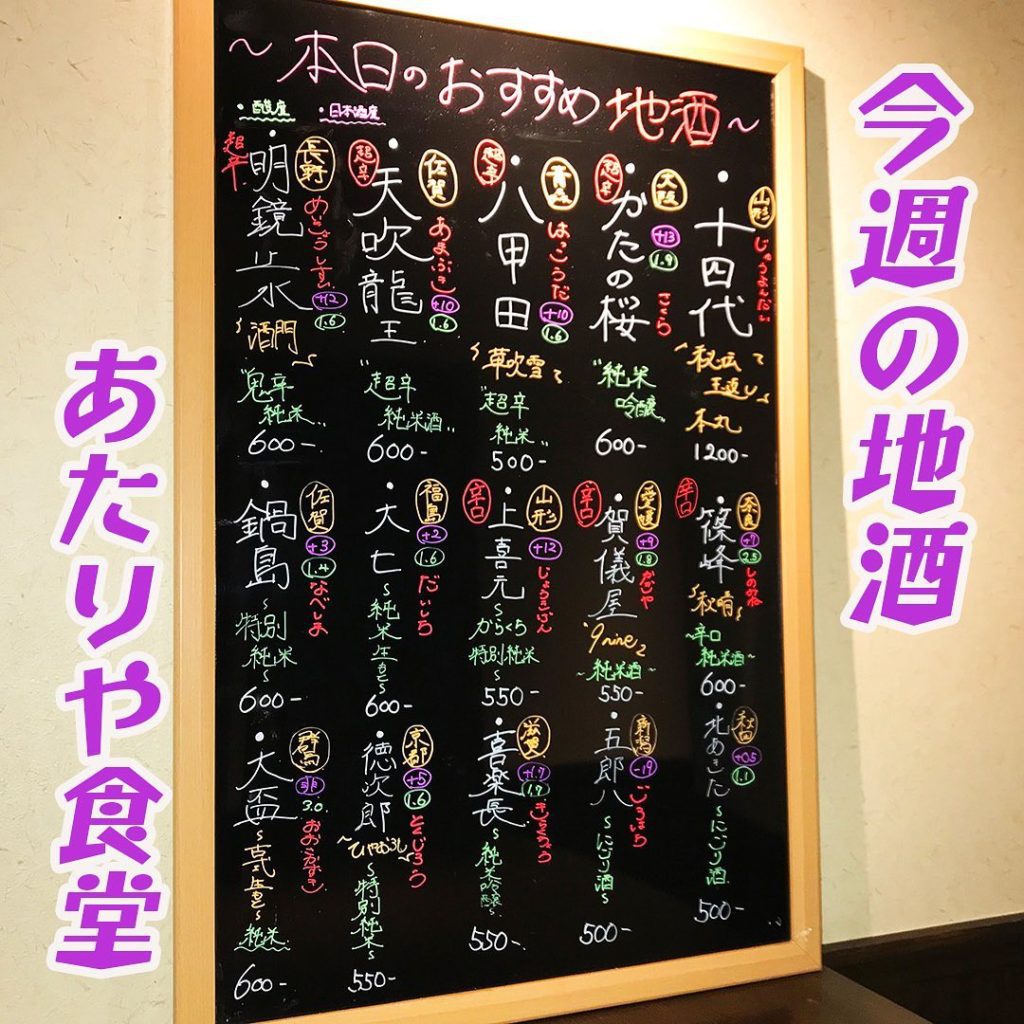 今週の地酒
あたりや食堂
～本日のおすすめ地酒～
・酉度
・日本酒度
山形
・十四代
じゅうよんだい
秘伝
玉返し
本丸
1200-
大阪
超辛
・かたの桜
さくら
+13
1.9
"純米
吟醸"
600-
青森
超辛
・八甲田
はっこうだ
+10
1.6
草吹雪
"超辛
純米"
500-
佐賀
超辛
・天吹龍王
あまぶき
+10
1.6
"超辛
純米酒"
600-
長野
超辛
・明鏡止水
めいきょうしすい
+12
1.6
酒門
"鬼辛
純米"
600-
奈良
辛口
・篠峰
しのみね
+7
2.3
秋晴
～辛口
純米酒～
600-
愛媛
辛口
・賀儀屋
かぎや
+9
1.8
"9nine"
～純米酒～
550-
山形
辛口
・上喜元
じょうきげん
+12
～からくち
特別純米
550-
福島
・大七
だいしち
+2
1.6
～純米生もと～
600-
佐賀
・鍋島
なべしま
+3
1.4
～特別
純米～
600-
秋田
・北あきた
+0.5
1.1
～にごり酒～
500-
新潟
・五郎八
ごろはち
-19
～にごり酒～
500-
滋賀
・喜楽長
きらくちょう
+1.7
1.7
～純米吟醸～
550-
京都
・徳次郎
とくじろう
+5
1.6
～ひやおろし
～特別純米～
550-
群馬
・大盃
おおさかずき
非
3.0
～古式生もと～
純米
600-